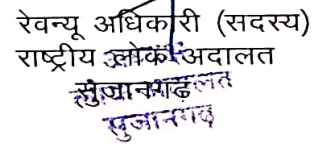 रेवन्यू अधिकारी (सदस्य)
राष्ट्रीय लोक अदालत
सुजानगढ़
सुजानगढ़